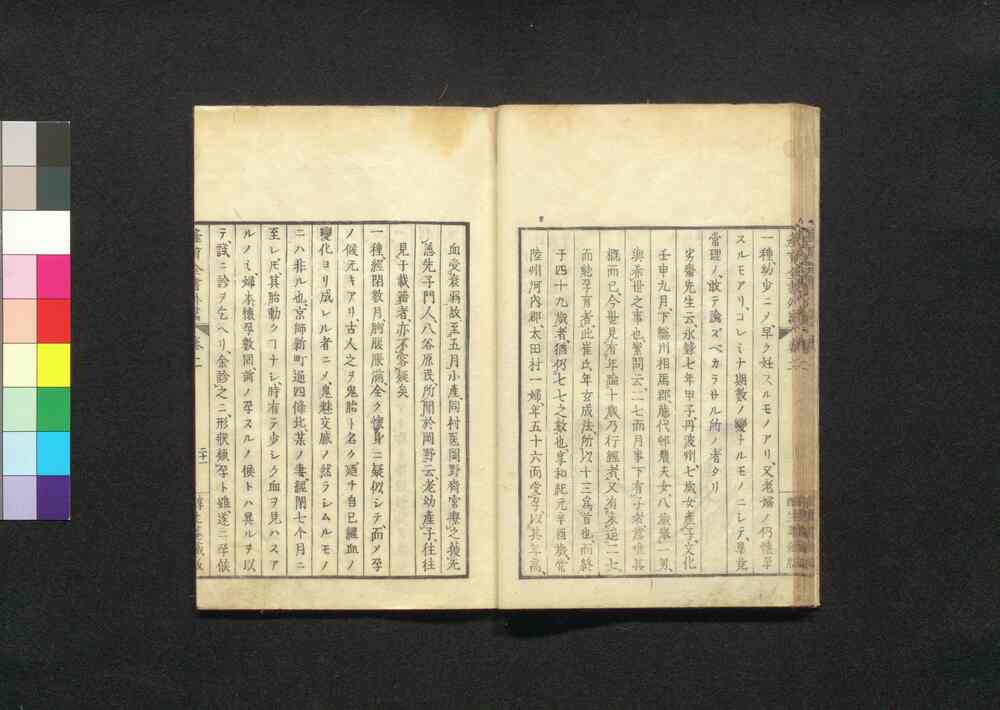 一種幼少ニノ早ク妊スルモノアリ又老婦ノ仍懷孕
スルモアリコレミナ期数ノ變トルモノニシテ畢竟
常理ノ故テ論ズベカラサル所ノ者タリ
劣齋先生云永録七年甲子丹波州七歳女産子文化
壬申九月下總川相馬郡藤代邨農夫女八歳擧一男
與奈世之事也素問云二七而月事下有子者蓋唯其
概而已今世見有年臨十歳乃行經者又有未迨二七
而能孕育者此崔氏年玄成法所以十三爲首也而終
于四十九歳者猶仍七七之数也享和紀元辛酉歳常
陸州河内郡太田村一婦年五十六而受孕以其年高
血受衰弱故至五月小産同村医岡野齊宮療之後先
愚先子門人八谷原民所聞於岡野云老幼産子往往
見于載籍者亦不容疑矣
一種經閉数月胯腹脹満全ク懷身ニ疑似シテ面メ孕
ノ候尤キアリ古人之ヲ鬼胎ト名ク適チ自已經血ノ
變化ヨリ成レル者ニメ鬼魅交感ノ然ラシムルモノ
ニハ非ル也京師新町通四條北某ノ妻經閉七个月ニ
至レ𪜈其胎動クヿナシ時有テ歩シク血ヲ見ハスア
ルノミ婦本懷孕数回前ノ孕スルノ候トハ異ルヲ以
テ試ニ診ヲ乞ヘリ余診之ニ形状積孕ト雖遂ニ孕候
卷二
二十一